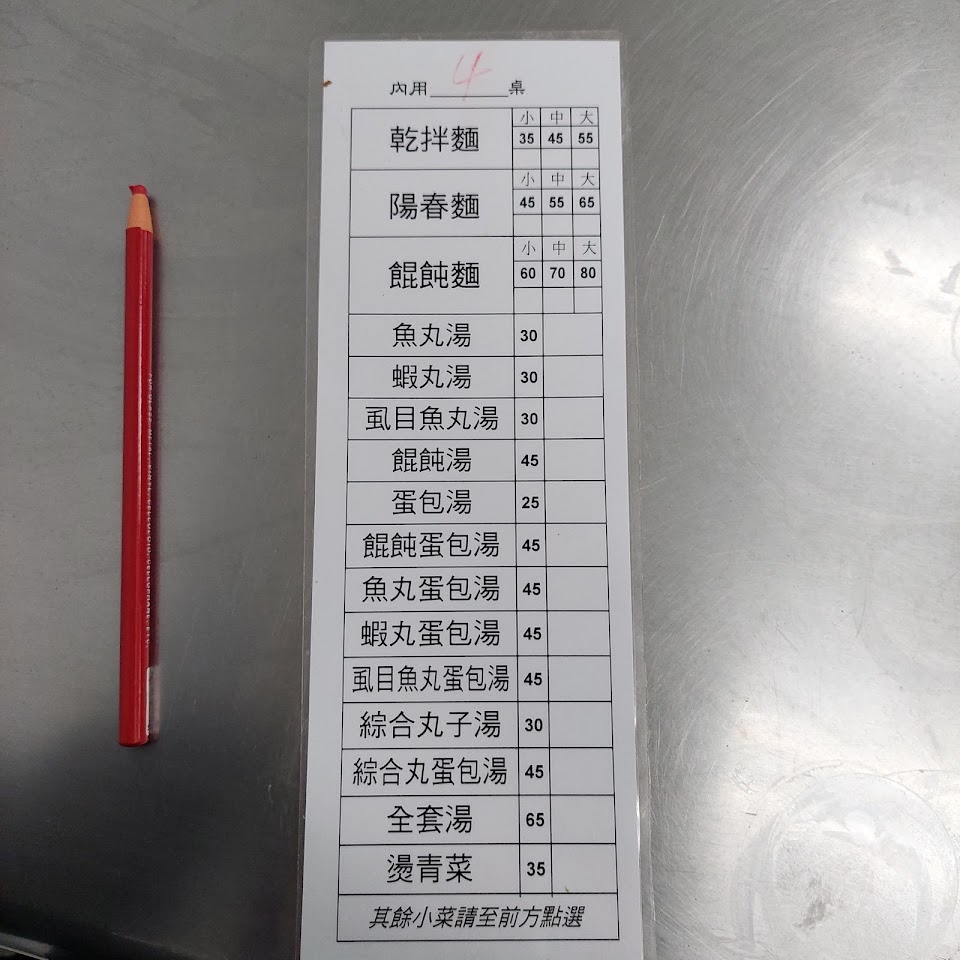 內用 4 桌
乾拌麵 小 中 大
35 45 55
陽春麵 小 中 大
45 55 65
餛飩麵 小 中 大
60 70 80
魚丸湯 30
蝦丸湯 30
虱目魚丸湯 30
餛飩湯 45
蛋包湯 25
餛飩蛋包湯 45
魚丸蛋包湯 45
蝦丸蛋包湯 45
虱目魚丸蛋包湯 45
綜合丸子湯 30
綜合丸蛋包湯 45
全套湯 65
燙青菜 35
其餘小菜請至前方點選